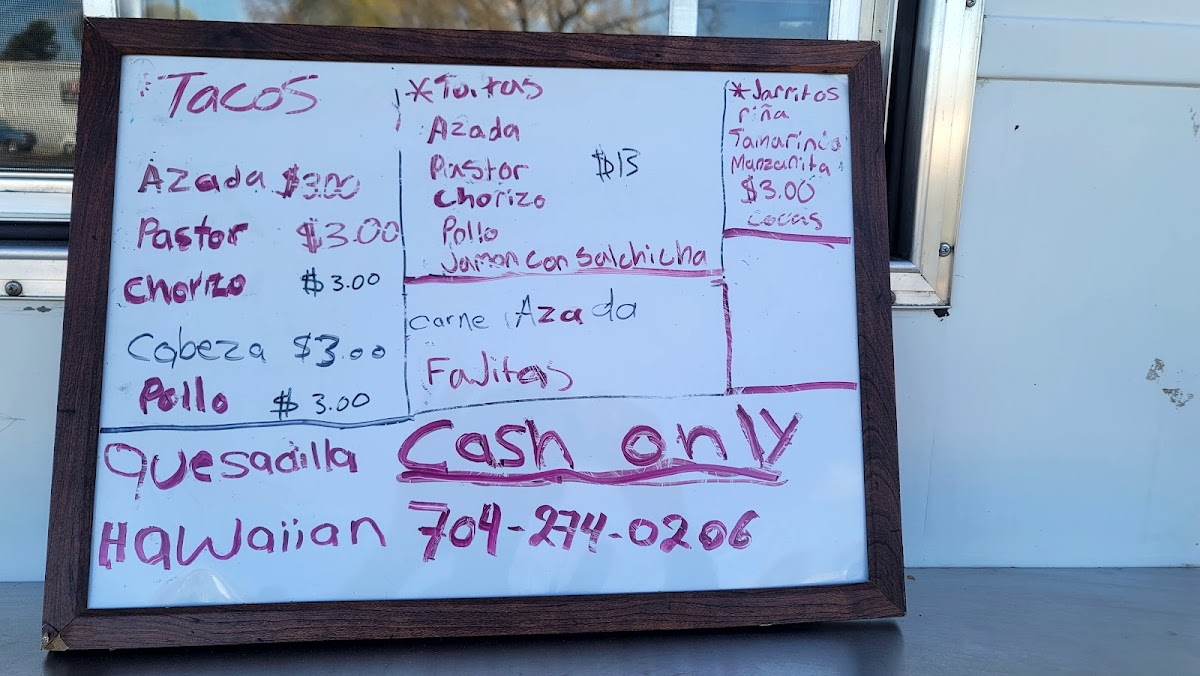 Tacos
Azada $3.00
Pastor $3.00
Chorizo $3.00
Cabeza $3.00
Pollo $3.00
*Tortas
Azada
Pastor $13
Chorizo
Pollo
Jamon Con Salchicha
Carne Azada
Fajitas
*Jarritos
Piña
Tamarindo
Manzanita
$3.00
cocas
Quesadilla
Hawaiian
Cash only
704-274-0206